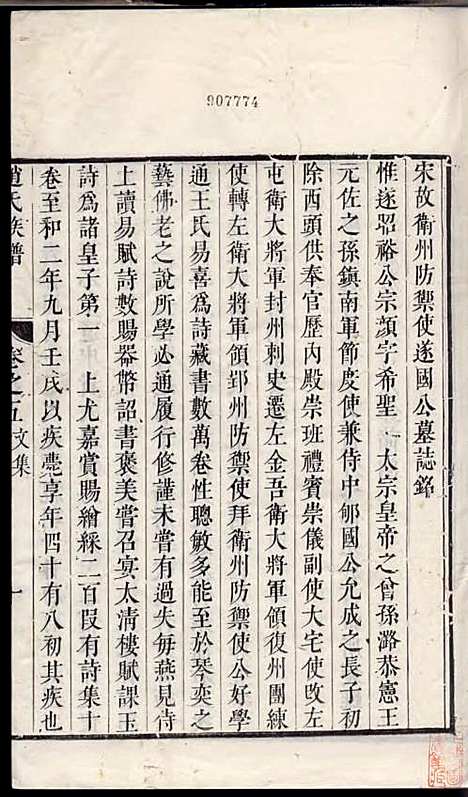 907774
宋故衛州防禦使遂國公墓誌銘
惟遂昭裕公宗顔字希聖　太宗皇帝之曾孫潞恭憲王
元佐之孫鎮南軍節度使兼侍中郇國公允成之長子初
除西頭供奉官歷内殿崇班禮賓崇儀副使大宅使改左
屯衛大將軍封州刺史遷左金吾衛大將軍領復州團練
使轉左衛大將軍領鄆州防禦使拜衛州防禦使公好學
通王氏易喜爲詩藏書數萬卷性聰敏多能至於琴奕之
藝佛老之說所學必通履行修謹未嘗有過失每燕見侍
上讀易賦詩數賜器幣詔書褒美嘗召宴太清樓賦課王
詩爲諸皇子第一　上尤嘉賞賜繒綵二百叚有詩集十
卷至和二年九月壬戌以疾薨享年四十有八初其疾也
趙氏族譜　卷之五文集　一